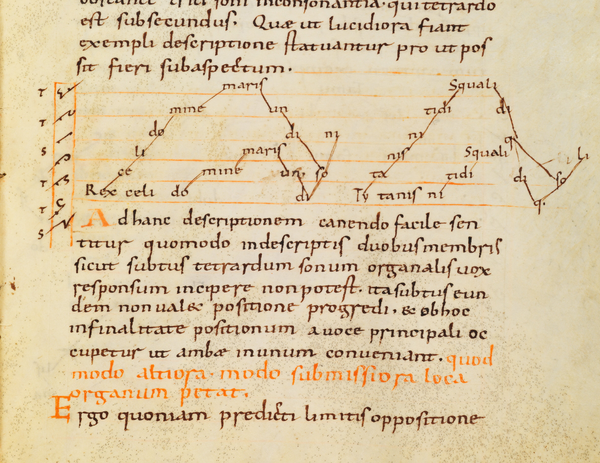 soni inconsonantia. qui tetrardo
est subsecundus. Quæ ut lucidiora fiant
exempli descriptione statuantur pro ut pos
sit fieri sub aspectum.
maris Squali
T
mine un tidi di
T
do di ni ni q
S
li maris nis Squali li
T
ce mine un so ta tidi di so
T
Rex celi do di Ty tanis ni q
S
Ad hanc descriptionem canendo facile sen
titur quomodo in descriptis duobus membris
sicut subtus tetrardum sonum organalis vox
responsum incipere non potest. ita subtus eun
dem non vale& positione progredi. & ob hoc
in finalitate positionum a voce principali oc
cupetur ut ambæ in unum conveniant. quod
modo altiora. modo submissiora loca
organum petat.
Ergo quoniam predicti limitis oppositione